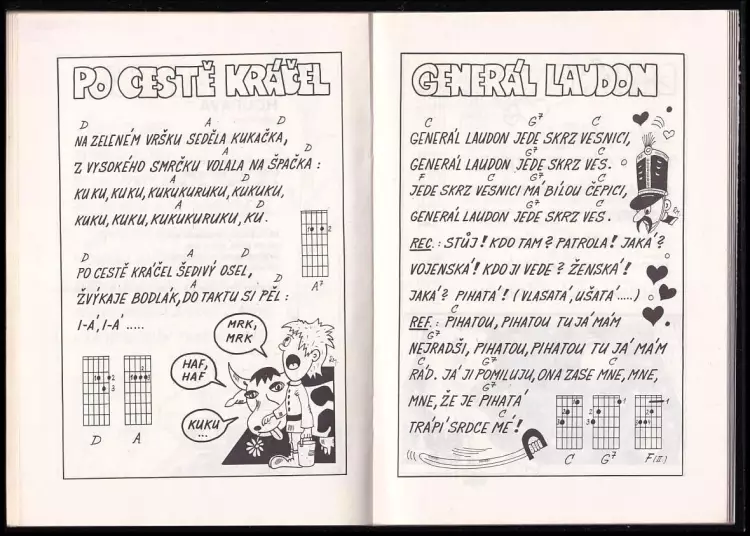 PO CESTĚ KRÁČEL
D A D
NA ZELENÉM VRŠKU SEDĚLA KUKAČKA,
A D
Z VYSOKÉHO SMRČKU VOLALA NA ŠPAČKA:
A D
KUKU, KUKU, KUKUKURUKU, KUKUKU,
A D
KUKU, KUKU, KUKUKURUKU, KU.
1 2
A7
D A D
PO CESTĚ KRÁČEL ŠEDIVÝ OSEL,
A D
ŽVÝKAJE BODLÁK, DO TAKTU SI PĚL:
I-Á, I-Á .....
MRK,
MRK
HAF,
HAF
KUKU
...
D A
GENERÁL LAUDON
C G7 C
GENERÁL LAUDON JEDE SKRZ VESNICI,
G7 C
GENERÁL LAUDON JEDE SKRZ VES.
F C G7 C
JEDE SKRZ VESNICI MÁ BÍLOU ČEPICI,
G7 C
GENERÁL LAUDON JEDE SKRZ VES.
REC.: STŮJ! KDO TAM? PATROLA! JAKÁ?
VOJENSKÁ! KDO JI VEDE? ŽENSKÁ!
JAKÁ? PIHATÁ! (VLASATÁ, UŠATÁ.....)
C
REF.: PIHATOU, PIHATOU TU JÁ MÁM
G7
NEJRADŠI, PIHATOU, PIHATOU TU JÁ MÁM
C G7 C
RÁD. JÁ JI POMILUJU, ONA ZASE MNE, MNE,
G7
MNE, ŽE JE PIHATÁ
C
TRÁPÍ SRDCE MÉ!
C G7 F(II.)